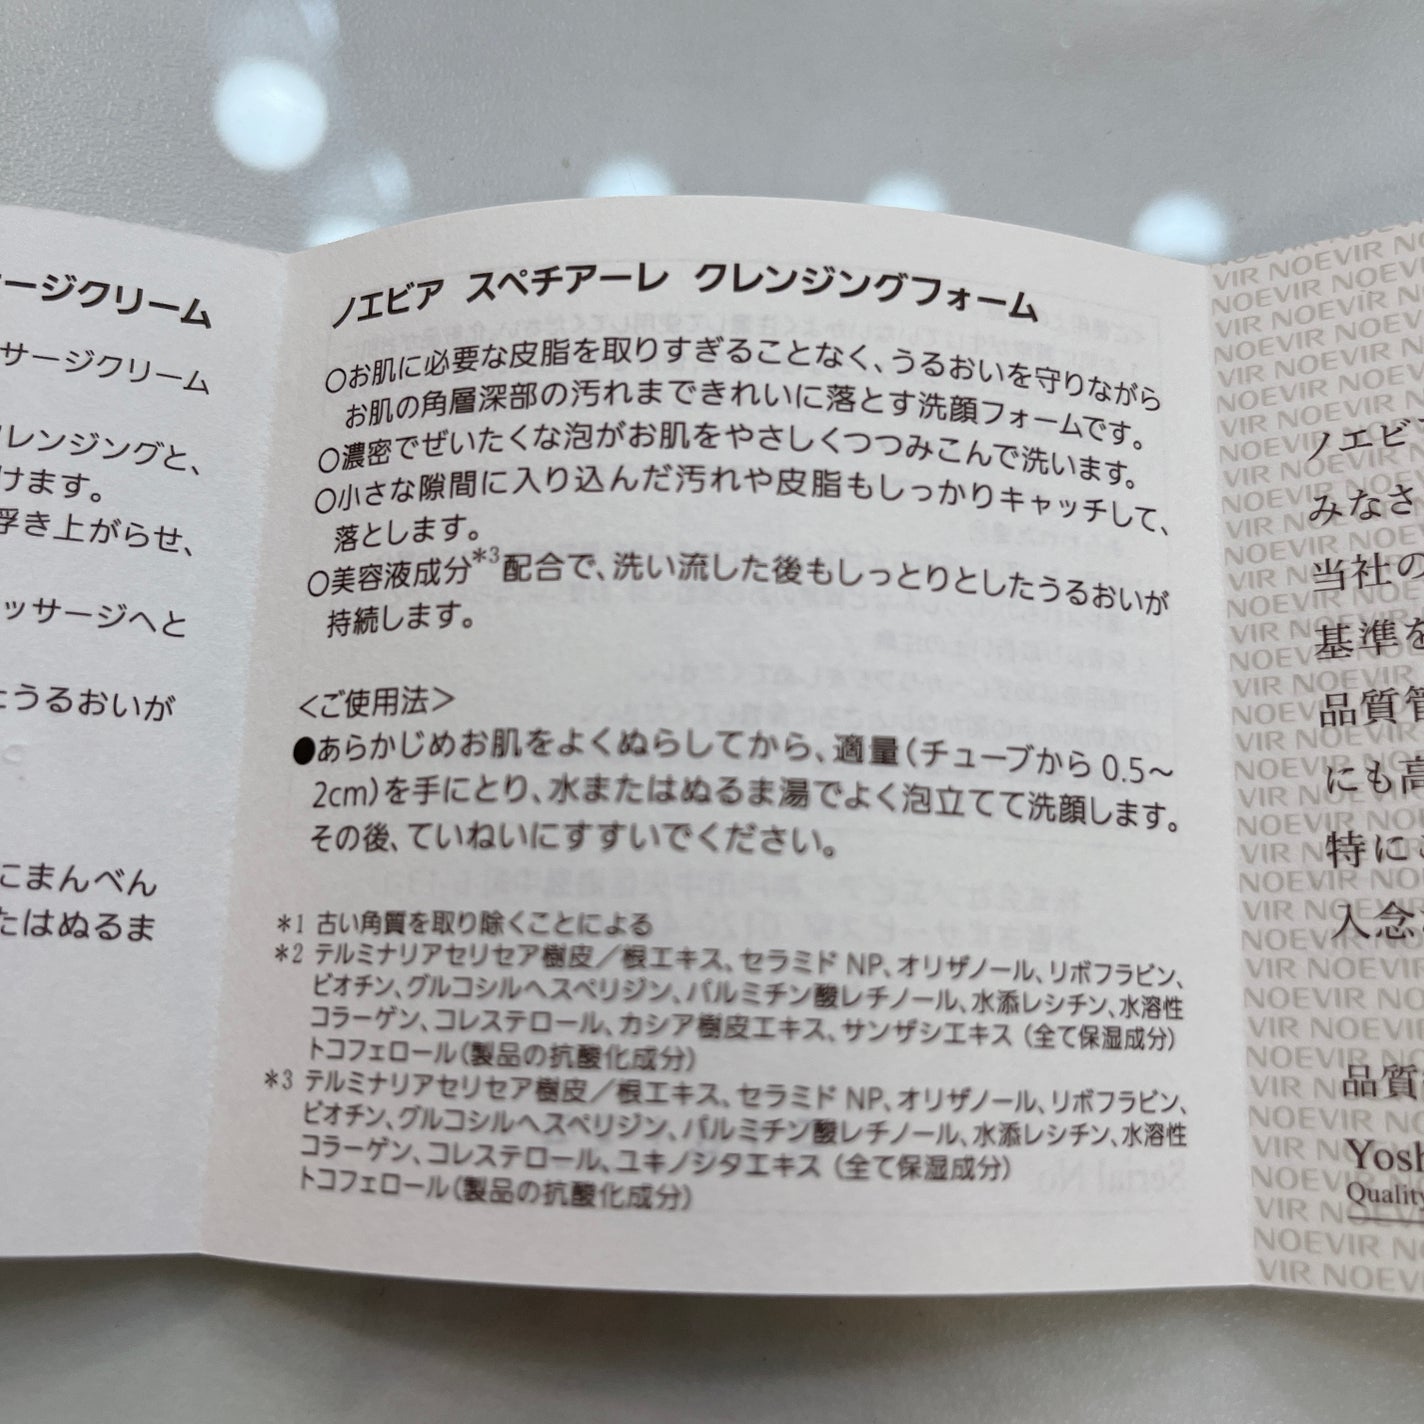 ージクリーム
サージクリーム
レンジングと、
けます。
浮き上がらせ、
ッサージへと
うるおいが
にまんべん
たはぬるま
ノエビア スペチアーレ クレンジングフォーム
○お肌に必要な皮脂を取りすぎることなく、うるおいを守りながら
お肌の角層深部の汚れまできれいに落とす洗顔フォームです。
○濃密でぜいたくな泡がお肌をやさしくつつみこんで洗います。
○小さな隙間に入り込んだ汚れや皮脂もしっかりキャッチして、
落とします。
○美容液成分*3配合で、洗い流した後もしっとりとしたうるおいが
持続します。
<ご使用法>
●あらかじめお肌をよくぬらしてから、適量(チューブから 0.5〜
2cm)を手にとり、水またはぬるま湯でよく泡立てて洗顔します。
その後、ていねいにすすいでください。
*1 古い角質を取り除くことによる
*2 テルミナリアセリセア樹皮/根エキス、セラミド NP、オリザノール、リボフラビン、
ビオチン、グルコシルヘスペリジン、パルミチン酸レチノール、水添レシチン、水溶性
コラーゲン、コレステロール、カシア樹皮エキス、サンザシエキス (全て保湿成分)
トコフェロール(製品の抗酸化成分)
*3 テルミナリアセリセア樹皮/根エキス、セラミド NP、オリザノール、リボフラビン、
ビオチン、グルコシルヘスペリジン、パルミチン酸レチノール、水添レシチン、水溶性
コラーゲン、コレステロール、ユキノシタエキス (全て保湿成分)
トコフェロール(製品の抗酸化成分)
ノエビ
みなさ
当社の
基準を
品質管
にも高
特に
入念
品質
Yosh
Quality